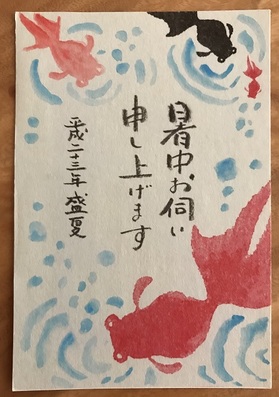 暑中お伺い
申し上げます
平成二十三年 盛夏